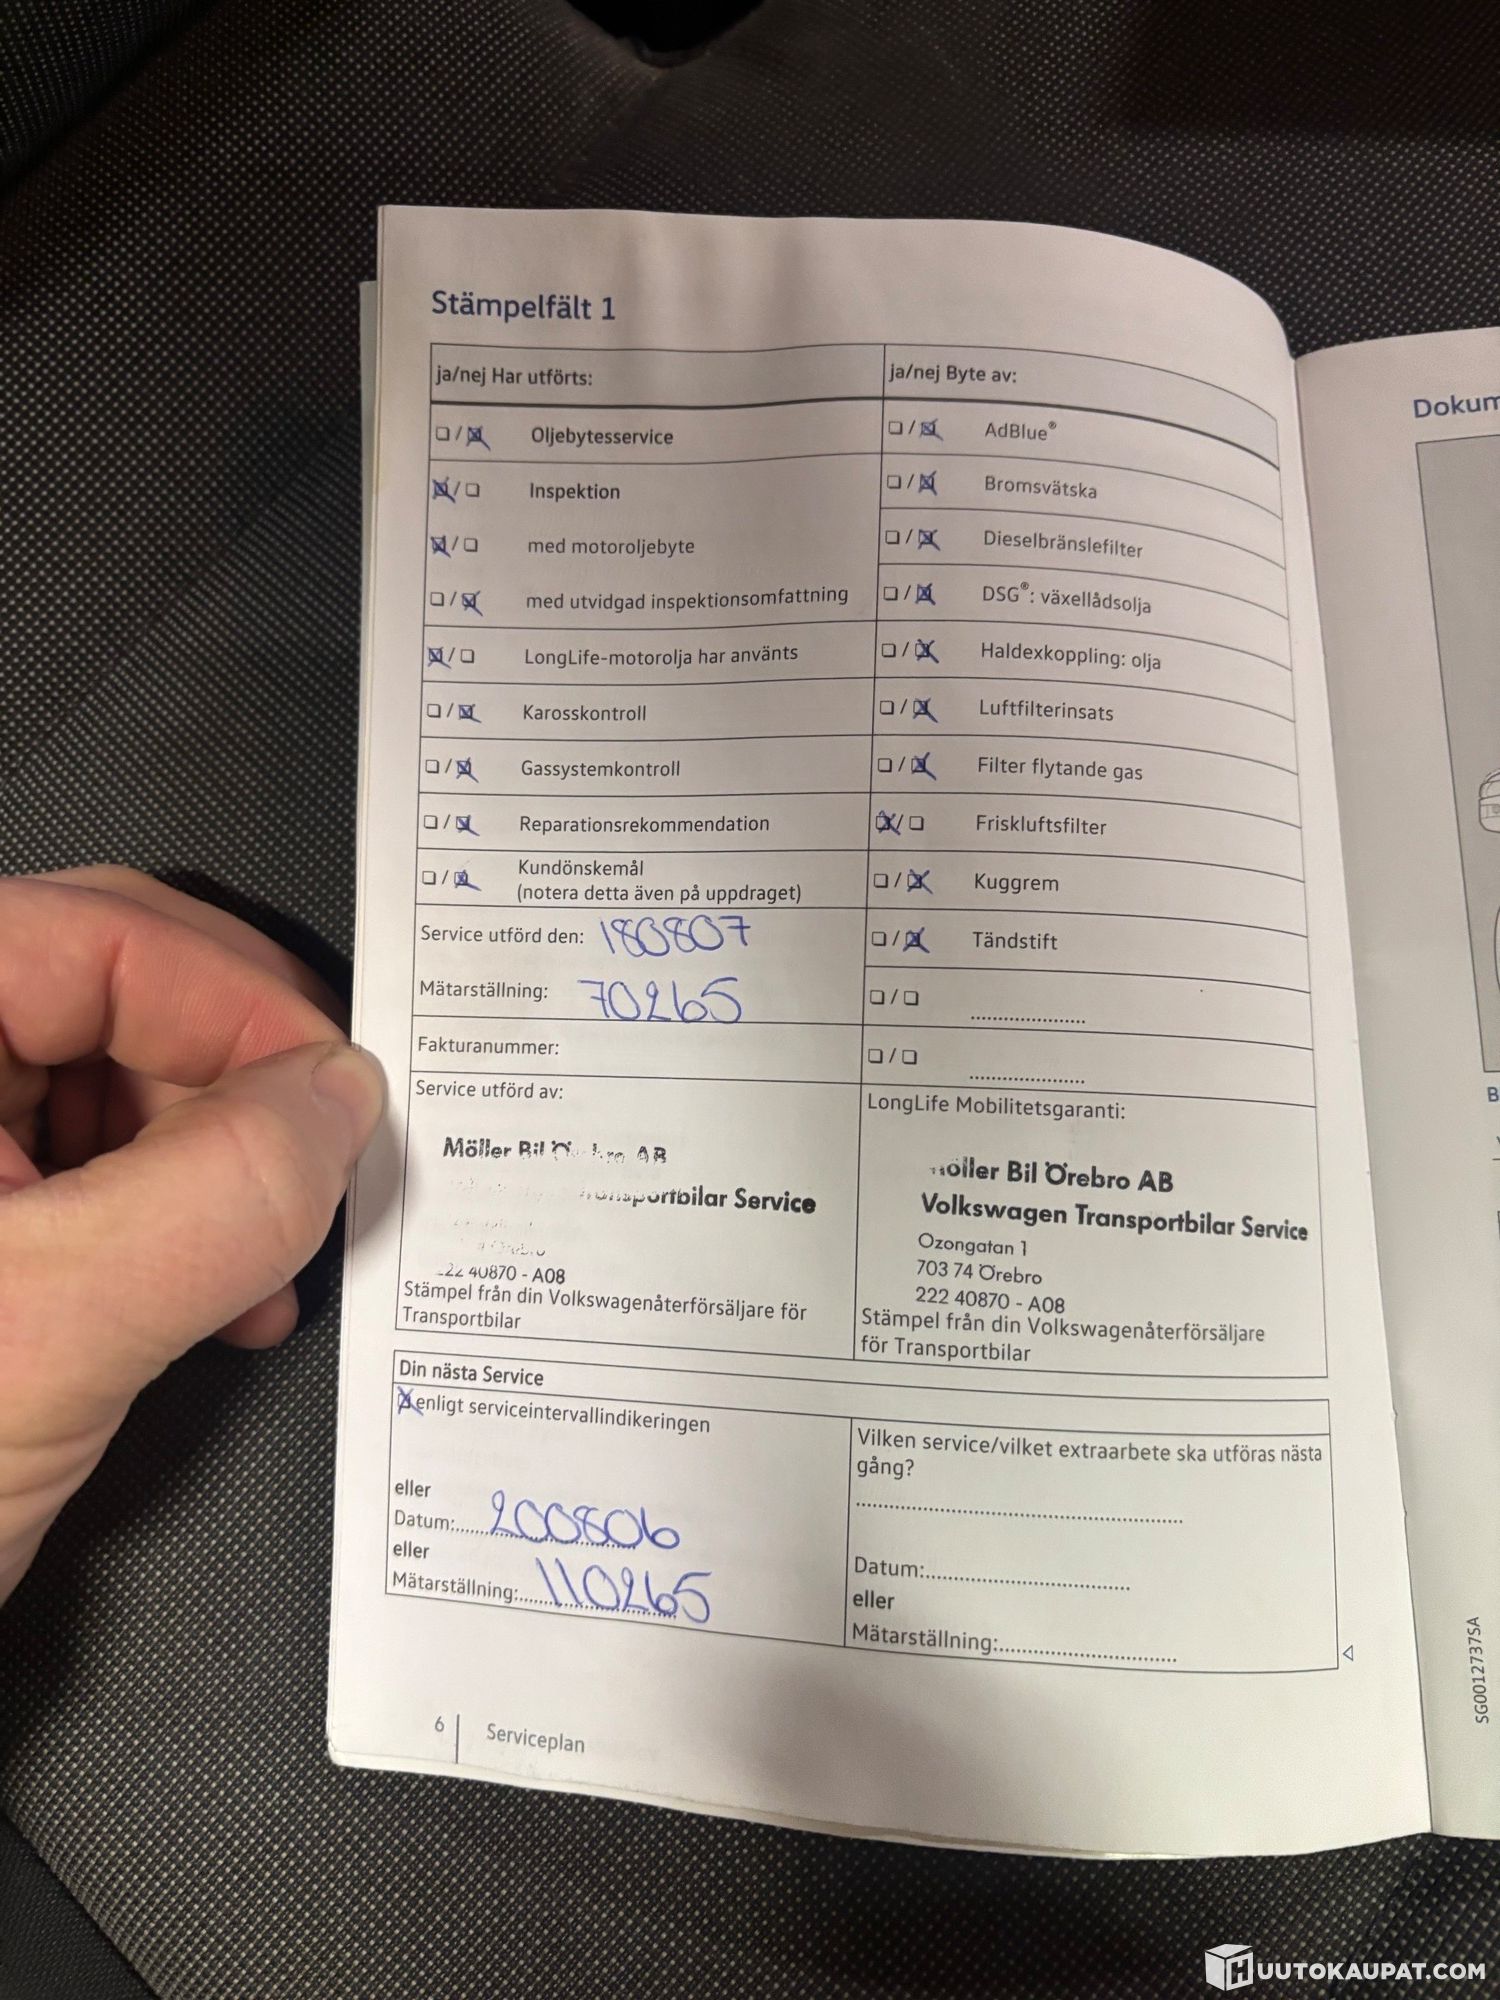 Stämpelfält 1
ja/nej Har utförts:
❏ / ☒ Oljebytesservice
☒ / ❏ Inspektion
☒ / ❏ med motoroljebyte
❏ / ☒ med utvidgad inspektionsomfattning
☒ / ❏ LongLife-motorolja har använts
❏ / ☒ Karosskontroll
❏ / ☒ Gassystemkontroll
❏ / ☒ Reparationsrekommendation
❏ / ☒ Kundönskemål
(notera detta även på uppdraget)
Service utförd den: 180807
Mätarställning: 70265
Fakturanummer:
Service utförd av:
Möller Bil Örebro AB
Transportbilar Service
Örebro
222 40870 - A08
Stämpel från din Volkswagenåterförsäljare för
Transportbilar
ja/nej Byte av:
❏ / ☒ AdBlue®
❏ / ☒ Bromsvätska
❏ / ☒ Dieselbränslefilter
❏ / ☒ DSG®: växellådsolja
❏ / ☒ Haldexkoppling: olja
❏ / ☒ Luftfilterinsats
❏ / ☒ Filter flytande gas
☒ / ❏ Friskluftsfilter
❏ / ☒ Kuggrem
❏ / ☒ Tändstift
❏ / ❏ ....................
❏ / ❏ ....................
LongLife Mobilitetsgaranti:
Möller Bil Örebro AB
Volkswagen Transportbilar Service
Ozongatan 1
703 74 Örebro
222 40870 - A08
Stämpel från din Volkswagenåterförsäljare
för Transportbilar
Din nästa Service
☒ enligt serviceintervallindikeringen
eller
Datum: 200806
eller
Mätarställning: 110265
Vilken service/vilket extraarbete ska utföras nästa
gång?
Datum:
eller
Mätarställning:
6 Serviceplan
Dokum
B
SG0012737SA
HUUTOKAUPAT.COM